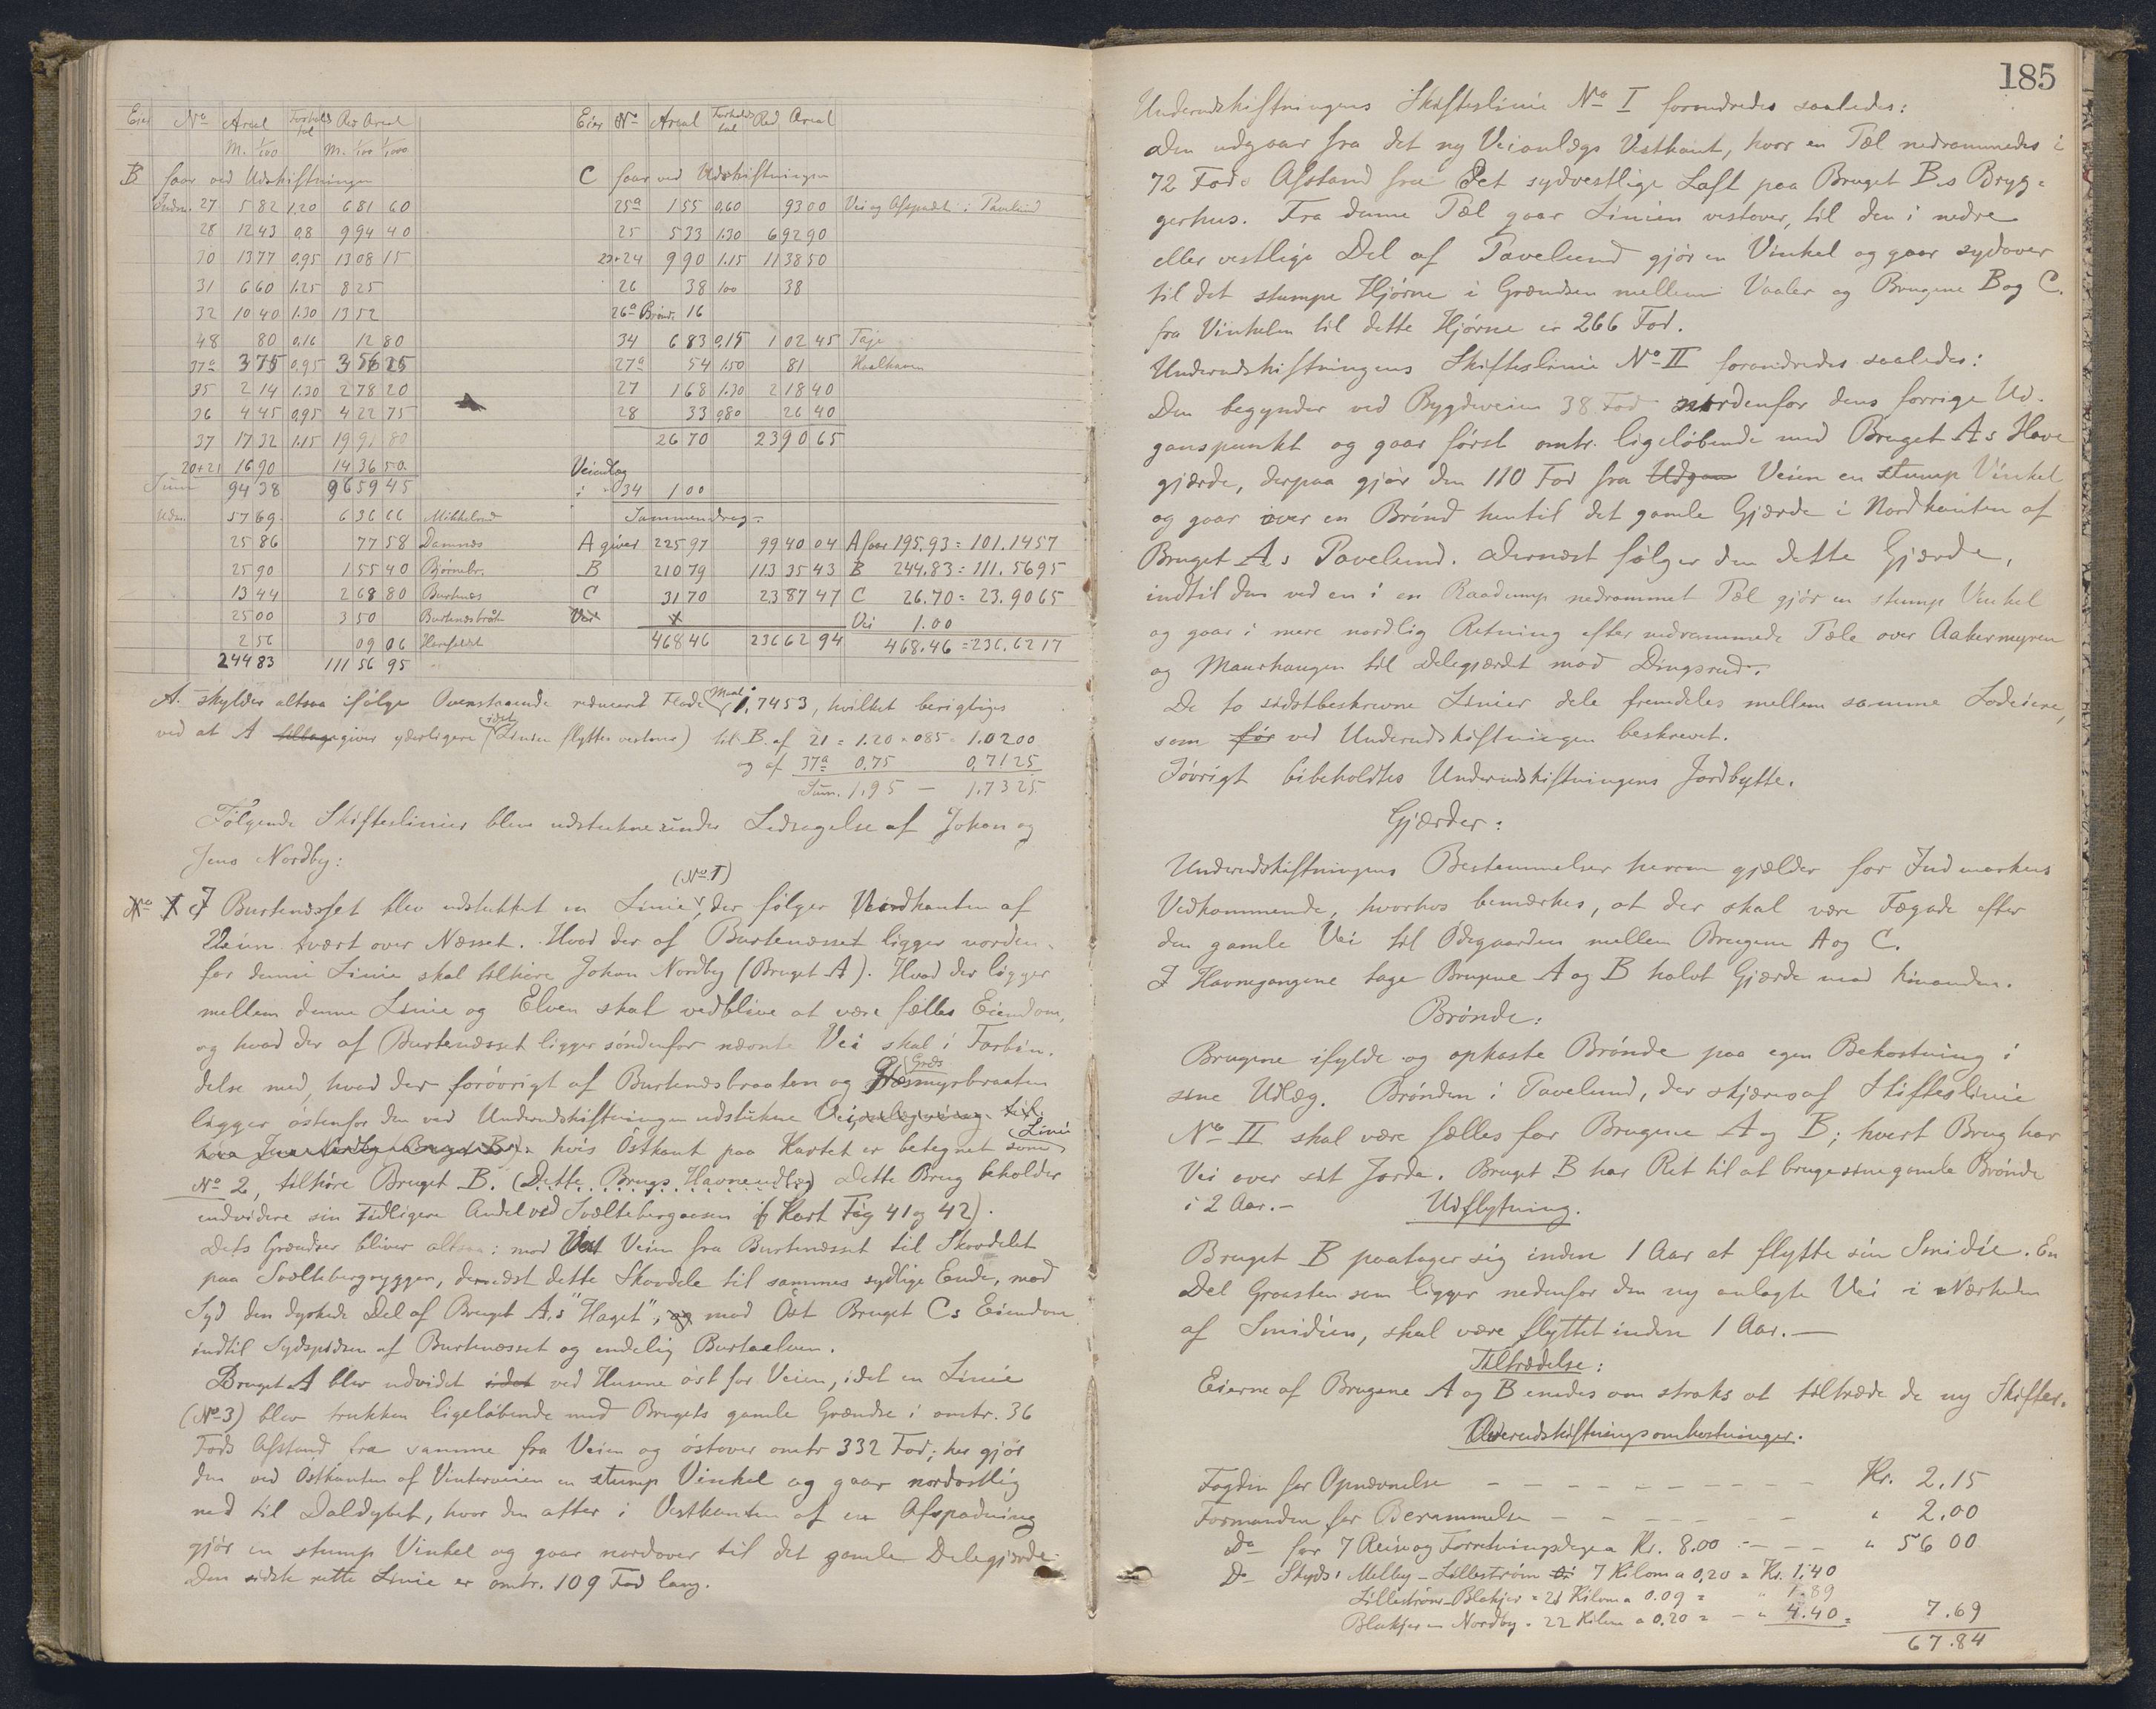 Eier No Areal Forholds tal Red Areal
M. 1/100 M. 1/100 1/1000
B faar ved Udskiftningen
Indm. 27 5 82 1.20 6 81 60
28 12 43 0,8 9 94 40
30 13 77 0,95 13 08 15
31 6 60 1.25 8 25
32 10 40 1.30 13 52
48 80 0,16 12 80
37a 3 75 0,95 3 56 25
35 2 14 1.30 2 78 20
36 4 45 0,95 4 22 75
37 17 32 1.15 19 91 80
20+21 16 90 14 36 50
Sum 94 38 96 59 45
Udm. 57 69 6 36 66 Mikkelsrud
25 86 77 58 Damnæs
25 90 1 55 40 Bjørnebr.
13 44 2 68 80 Burtnæs
25 00 3 50 Burtnæsbråt
2 56 09 06
244 83 111 56 95
Eier No Areal Forholds tal Red Areal
C faar ved Udskiftningen
25a 1 55 0,60 93 00 Vei og Afspadt i Pavelund
25 5 33 1.30 6 92 90
23+24 9 90 1.15 11 38 50
26 38 100 38
26a Brønd. 16
34 6 83 0,15 1 02 45 Taje
27a 54 1.50 81 Kaalhaven
27 1 68 1.30 2 18 40
28 33 0,80 26 40
26 70 23 90 65
Veiudlæg
i 34 1 00
Sammendrag.
A giver 225 97 99 40 04 A faar 195.93 = 101.1457
B 210 79 113 35 43 B 244.83 = 111.5695
C 31 70 23 87 47 C 26.70 = 23.9065
Vei 1.00
468 46 236 62 94 468.46 = 236.6217
A. skylder altsaa ifølge Ovenstaaende reduceret Flade Maal 1,7453, hvilket berigtiges
ved at A giver yderligere (idet Linien flyttes vestover) til B. af 21 = 1.20 × 085 = 1.0200
og af 37a 0.75 0,7125
Sum. 1.95 — 1.7325
Følgende Skifteslinier blev udstukne under Ledsagelse af Johan og
Jens Nordby:
(No 1)
I Burtenæsset blev udstukket en Linie, der følger Nordkanten af
Veien tvært over Næsset. Hvad der af Burtenæsset ligger norden-
for denne Linie skal tilhøre Johan Nordby (Bruget A). Hvad der ligger
mellem denne Linie og Elven skal vedblive at være fælles Eiendom,
og hvad der af Burtenæsset ligger søndenfor nævnte Vei skal i Forbin-
delse med, hvad der forøvrigt af Burtenæsbraaten og Græsmyrbraaten
ligger østenfor den ved Underudskiftningen udstukne
hvis Østkant paa Kartet er betegnet som Linie
No 2, tilhøre Bruget B. (Dette Brugs Havneudlæg) Dette Brug beholder
endvidere sin tidligere Andel ved Svæltebergaasen (cf Kart Fig 41 og 42).
Dets Grændser bliver altsaa: mod Vest Veien fra Burtenæsset til Skovdelet
paa Svæltebergryggen, dernæst dette Skovdele til sammes sydlige Ende, mod
Syd den dyrkede Del af Bruget A.s "Haget", mod Øst Bruget Cs Eiendom
indtil Sydspidsen af Burtenæsset og endelig Burtaelven.
Bruget A blev udvidet ved Husene øst for Veien, idet en Linie
(No 3) blev trukken ligeløbende med Brugets gamle Grændse i omtr. 36
Fods Afstand fra samme fra Veien og østover omtr 332 Fod; her gjør
den ved Østkanten af Vinterveien en stump Vinkel og gaar nordostlig
ned til Daldybet, hvor den atter i Vestkanten af en Afspadning
gjør en stump Vinkel og gaar nordover til det gamle Delegjærde.
Den sidste rette Linie er omtr. 109 Fod lang.
185
Underudskiftningens Skifteslinie No I forandredes saaledes:
Den udgaar fra det ny Veianlægs Vestkant, hvor en Pæl nedrammedes i
72 Fods Afstand fra det sydvestlige Laft paa Bruget B.s Bryg-
gerhus. Fra denne Pæl gaar Linien vestover, til den i nedre
eller vestlige Del af Pavelund gjør en Vinkel og gaar sydover
til det stumpe Hjørne i Grændsen mellem Vaaler og Brugene B og C.
fra Vinkelen til dette Hjørne er 266 Fod.
Underudskiftningens Skifteslinie No II forandredes saaledes:
Den begynder ved Bygdeveien 38 Fod nordenfor dens forrige Ud-
ganspunkt og gaar først omtr. ligeløbende med Bruget A s Have
gjærde, derpaa gjør den 110 Fod fra Veien en stump Vinkel
og gaar over en Brønd hentil det gamle Gjærde i Nordkanten af
Bruget A s Pavelund. Dernæst følger den dette Gjærde,
indtil den ved en i en Raadump nedrammet Pæl gjør en stump Vinkel
og gaar i mere nordlig Retning efter nedrammede Pæle over Aakermyren
og Maurhaugen til Delegjærdet mod Dingsrud.
De to sidstbeskrevne Linier dele fremdeles mellem samme Lodeiere,
som ved Underudskiftningen beskrevet.
Iøvrigt bibeholdtes Underudskiftningens Jordbytte.
Gjærder:
Underudskiftningens Bestemmelser herom gjælder for Indmarkens
Vedkommende, hvorhos bemærkes, at der skal være Fægade efter
den gamle Vei til Ødegaarden mellem Brugene A og C.
I Havnegangene tage Brugene A og B halvt Gjærde mod hinanden.
Brønde:
Brugene ifylde og opkaste Brønde paa egen Bekostning i
sine Udlæg. Brønden i Pavelund, der skjæres af Skifteslinie
No II skal være fælles for Brugene A og B; hvert Brug har
Vei over sit Jorde. Bruget B har Ret til at bruge sine gamle Brønde
i 2 Aar.-
Udflytning.
Bruget B paatager sig inden 1 Aar at flytte sin Smidie. En
Del Graasten som ligger nedenfor den ny anlagte Vei i Nærheden
af Smidien, skal være flyttet inden 1 Aar.—
Tiltrædelse:
Eierne af Brugene A og B enedes om straks at tiltræde de ny Skifter.
Overudskiftningsomkostninger.
Fogden for Opnævnelse Kr. 2.15
Formanden for Berammelse " 2.00
Do for 7 Reise og Forretningsdage a Kr. 8.00 " 56 00
Do Skyds: Melby - Lillestrøm 7 Kilom a 0,20 = Kr. 1.40
Lillestrøm - Blakjer = 21 Kilom a 0.09 = " 1.89
Blakjer - Nordby = 22 Kilom a 0.20 = " 4.40 = 7.69
67.84